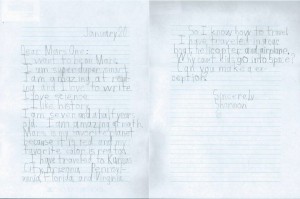 January 22
Dear Mars One:
I want to be on Mars.
I am super duper smart.
I am amazing at read
ing and I love to write
I love science
I like history.
I am seven and a half years
old. I am amazing at math.
Mars is my favorite planet
because it is red and my
favorite color is red too.
I have traveled to Kansas
City, Arizona, Pennsyl-
vania, Florida and Virginia.
So I know how to travel.
I have traveled in a car
boat, helicopter and airplane.
Why can't kids go into space?
Can you make a ex
ception.
Sincerely,
Shannon